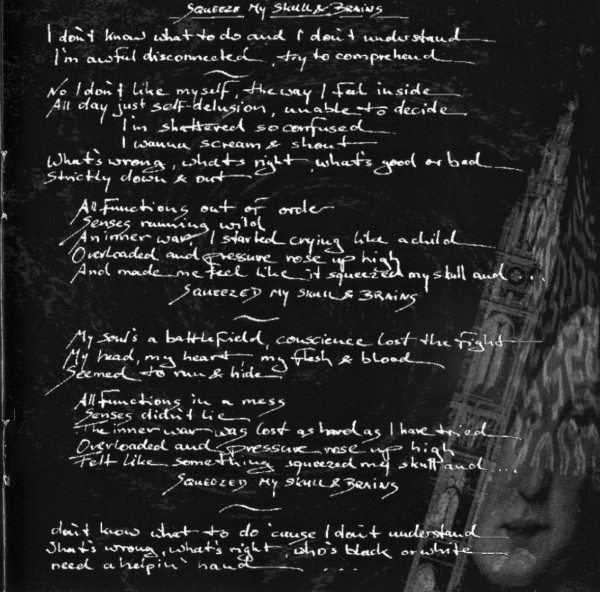 SQUEEZE MY SKULL & BRAINS
I don't know what to do and I don't understand
I'm awful disconnected, try to comprehend
No I don't like myself, the way I feel inside
All day just self-delusion, unable to decide
I'm shattered so confused
I wanna scream & shout
What's wrong, what's right, what's good or bad
Strictly down & out
All functions out of order
Senses running wild
An inner war, I started crying like a child
Overloaded and pressure rose up high
And made me feel like it squeezed my skull and ...
SQUEEZED MY SKULL & BRAINS
My soul's a battlefield, conscience lost the fight
My head, my heart, my flesh & blood
Seemed to run & hide
All functions in a mess
Senses didn't lie
The inner war was lost as hard as I have tried
Overloaded and pressure rose up high
Felt like something squeezed my skull and ...
SQUEEZED MY SKULL & BRAINS
don't know what to do 'cause I don't understand
What's wrong, what's right, who's black or white
need a helpin' hand ....